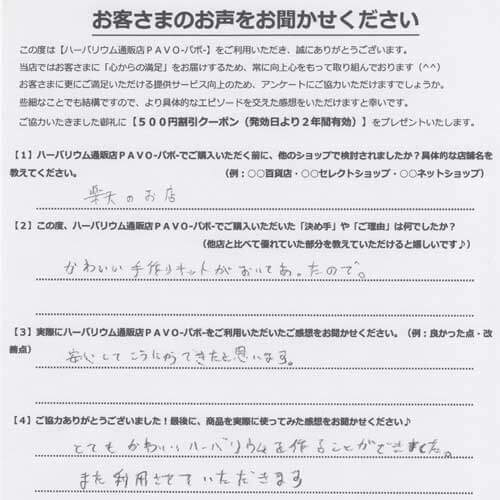 お客さまのお声をお聞かせください
この度は【ハーバリウム通販店ＰＡＶＯ-パボ-】をご利用いただき、誠にありがとうございます。
当店ではお客さまに「心からの満足」をお届けするため、常に向上心をもって取り組んでおります（^^）
お客さまに更にご満足いただける提供サービス向上のため、アンケートにご協力いただけますでしょうか。
些細なことでも結構ですので、より具体的なエピソードを交えた感想をいただけますと幸いです。
ご協力いただきました御礼に【５００円割引クーポン（発効日より２年間有効）】をプレゼントいたします。
【１】ハーバリウム通販店ＰＡＶＯ-パボ-でご購入いただく前に、他のショップで検討されましたか？具体的な店舗名を
教えてください。（例：○○百貨店・○○セレクトショップ・○○ネットショップ）
楽天のお店
【２】この度、ハーバリウム通販店ＰＡＶＯ-パボ-でご購入いただいた「決め手」や「ご理由」は何でしたか？
（他店と比べて優れていた部分を教えていただけると嬉しいです♪）
かわいい手作りキットがおいてあったので。
【３】実際にハーバリウム通販店ＰＡＶＯ-パボ-をご利用いただいたご感想をお聞かせください。（例：良かった点・改
善点）
安心してこうにゅうできたと思います。
【４】ご協力ありがとうございました！最後に、商品を実際に使ってみた感想をお聞かせください♪
とてもかわいいハーバリウムを作ることができました。
また利用させていただきます